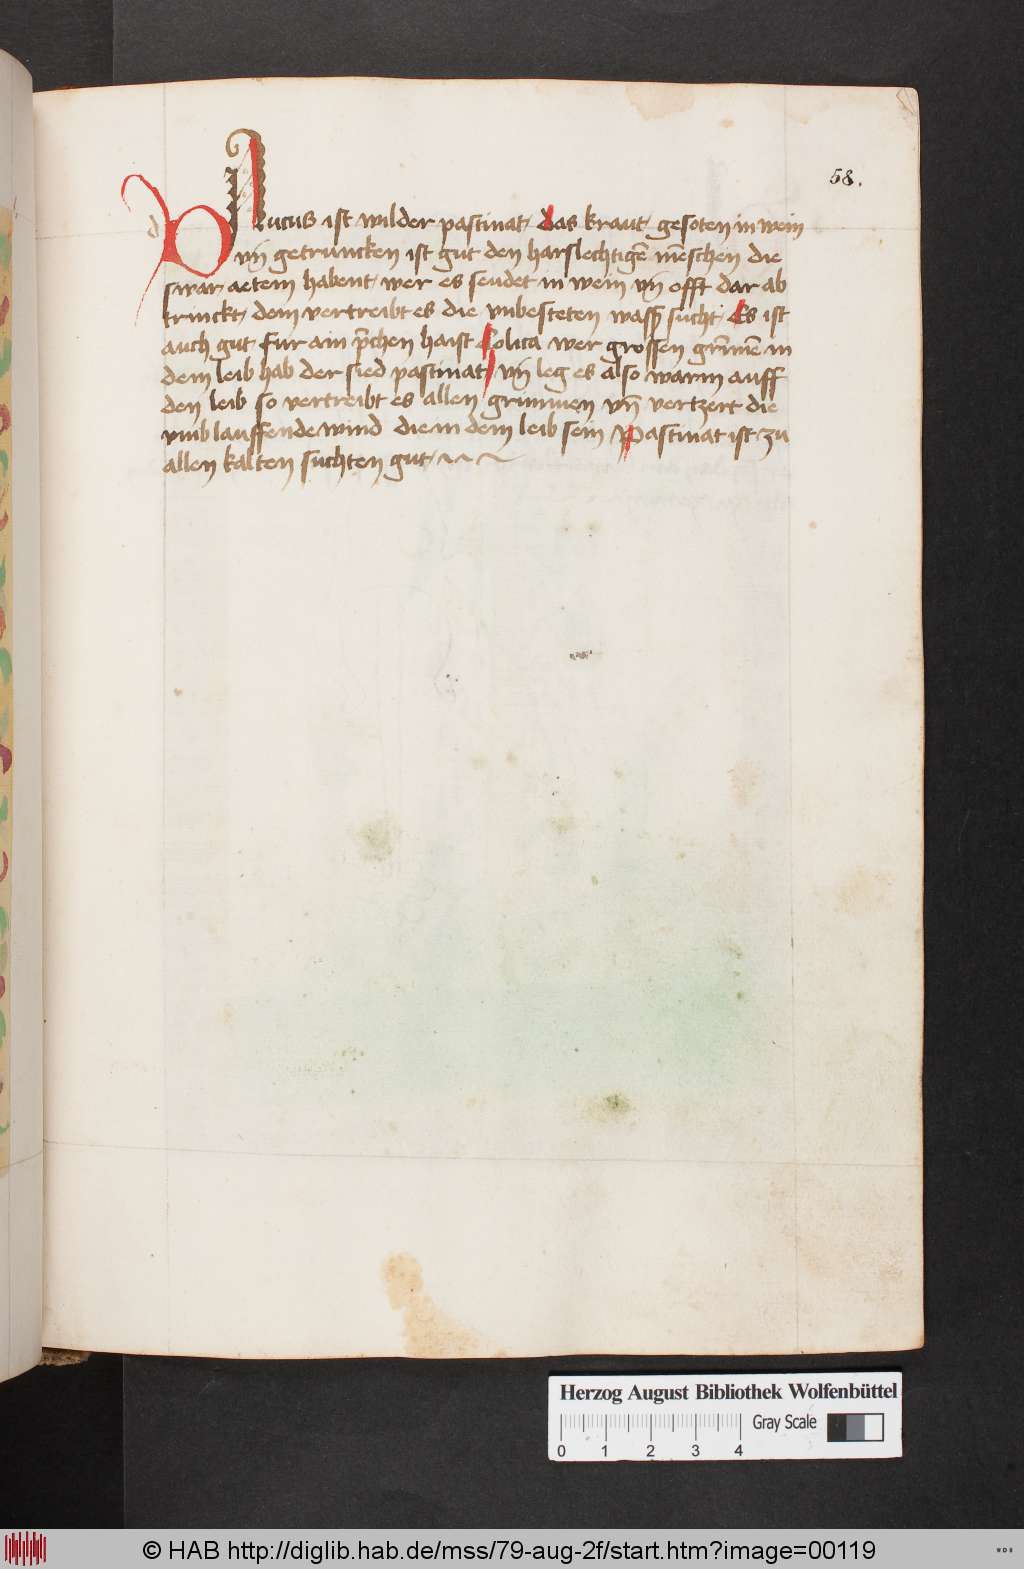 58.
d
Daucus ist wilder pastinat, das kraut, gesoten in wein
vn̄ getruncken ist gut den harslechtigē mēschen die
swar aetem habent, wer es seudet in wein vn̄ offt dar ab
trinckt, dem vertreibt es die vnbesteten wass̄ sucht, Es ist
auch gut fur ain p̄chen haist Colica wer grossen gri̅me̅ in
dem leib hab der sied pastinat, vn̄ leg es also warm auff
den leib so vertreibt es allen grimmen vn̄ vertzert die
vmb lauffende wind die in dem leib sein Pastinat ist zu
allen kalten suchten gut,
Herzog August Bibliothek Wolfenbüttel
Gray Scale
0 1 2 3 4
© HAB http://diglib.hab.de/mss/79-aug-2f/start.htm?image=00119